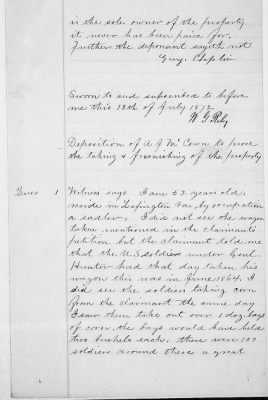 is the sole owner of the property
it never has been paid for,
further the deponant sayeth not
Geo. Chaplin
Sworn to and subscribed to before
me this 18th of July 1872
W G
Deposition of A J McCown to prove
the taking & furnishing of the property
Ques 1 Witness says I am 52 years old,
reside in Lexington Va, by occupation
a sadler, I did not see the wagon
taken mentioned in the claimants
petition but the claimant told me
that the U.S soldiers under Genl
Hunter had that day taken his
wagon this was in June 1864, I
did see the soldiers taking corn
from the claimant the same day
I saw them take out over 1 doz. bags
of corn, the bags would have held
two bushels each, there were 100
soldiers around there a great